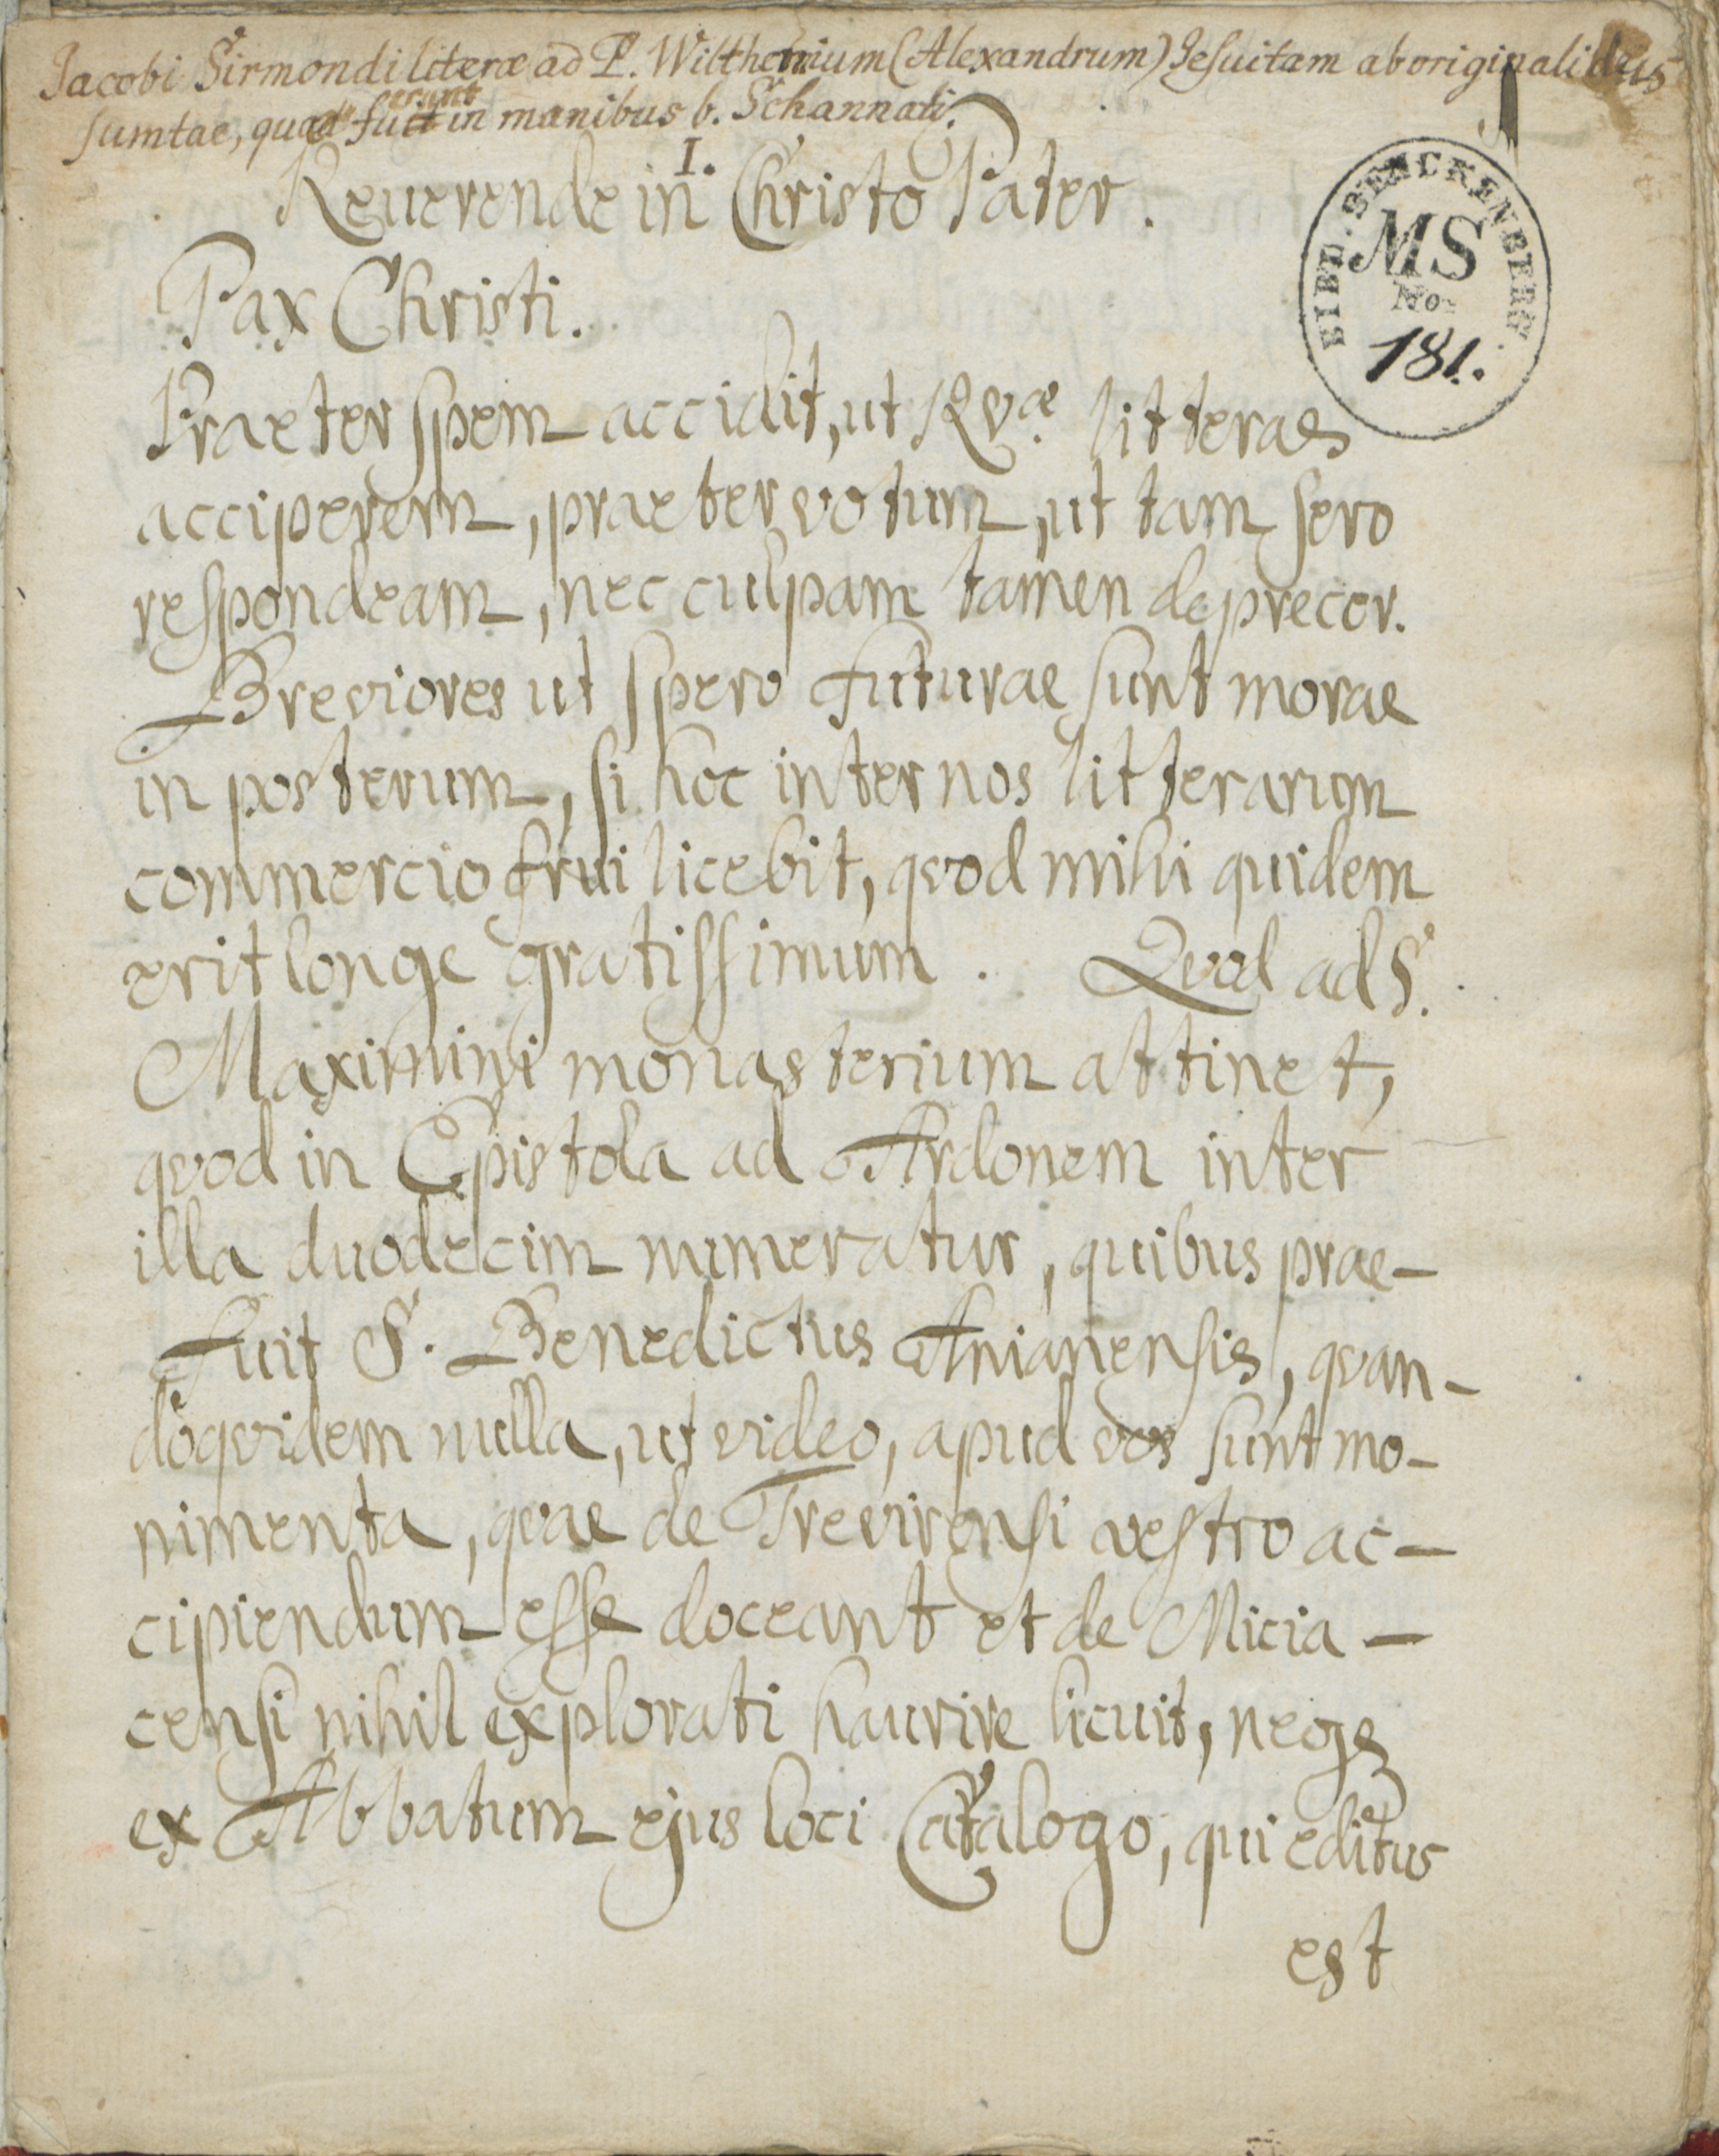 Jacobi Sirmondi literæ ad P. Wilthemium (Alexandrum) Jesuitam ab originalibus
sumtae, quae fuerunt in manibus b. Schannati.
I.
Reuerende in Christo Pater.
BIBL. SENCKENBERG.
MS
No.
181.
Pax Christi.
Praeter spem accidit, ut RVæ litteras
acciperem, praeter votum, ut tam sero
respondeam, nec culpam tamen deprecor.
Breviores ut spero futurae sunt morae
in posterum, si hoc inter nos litterarum
commercio frui licebit, qvod mihi quidem
erit longe gratissimum. Qvod ad S.
Maximini monasterium attinet,
qvod in Epistola ad Ardonem inter
illa duodecim numeratur, quibus prae-
fuit S. Benedictus Anianensis, qvan-
doqvidem nulla, ut video, apud vos sunt mo-
nimenta, qvae de Trevirensi vestro ac-
cipiendum esse doceant et de Micia-
censi nihil explorati haurire licuit, neqe
ex Abbatum ejus loci Catalogo, qui editus
est